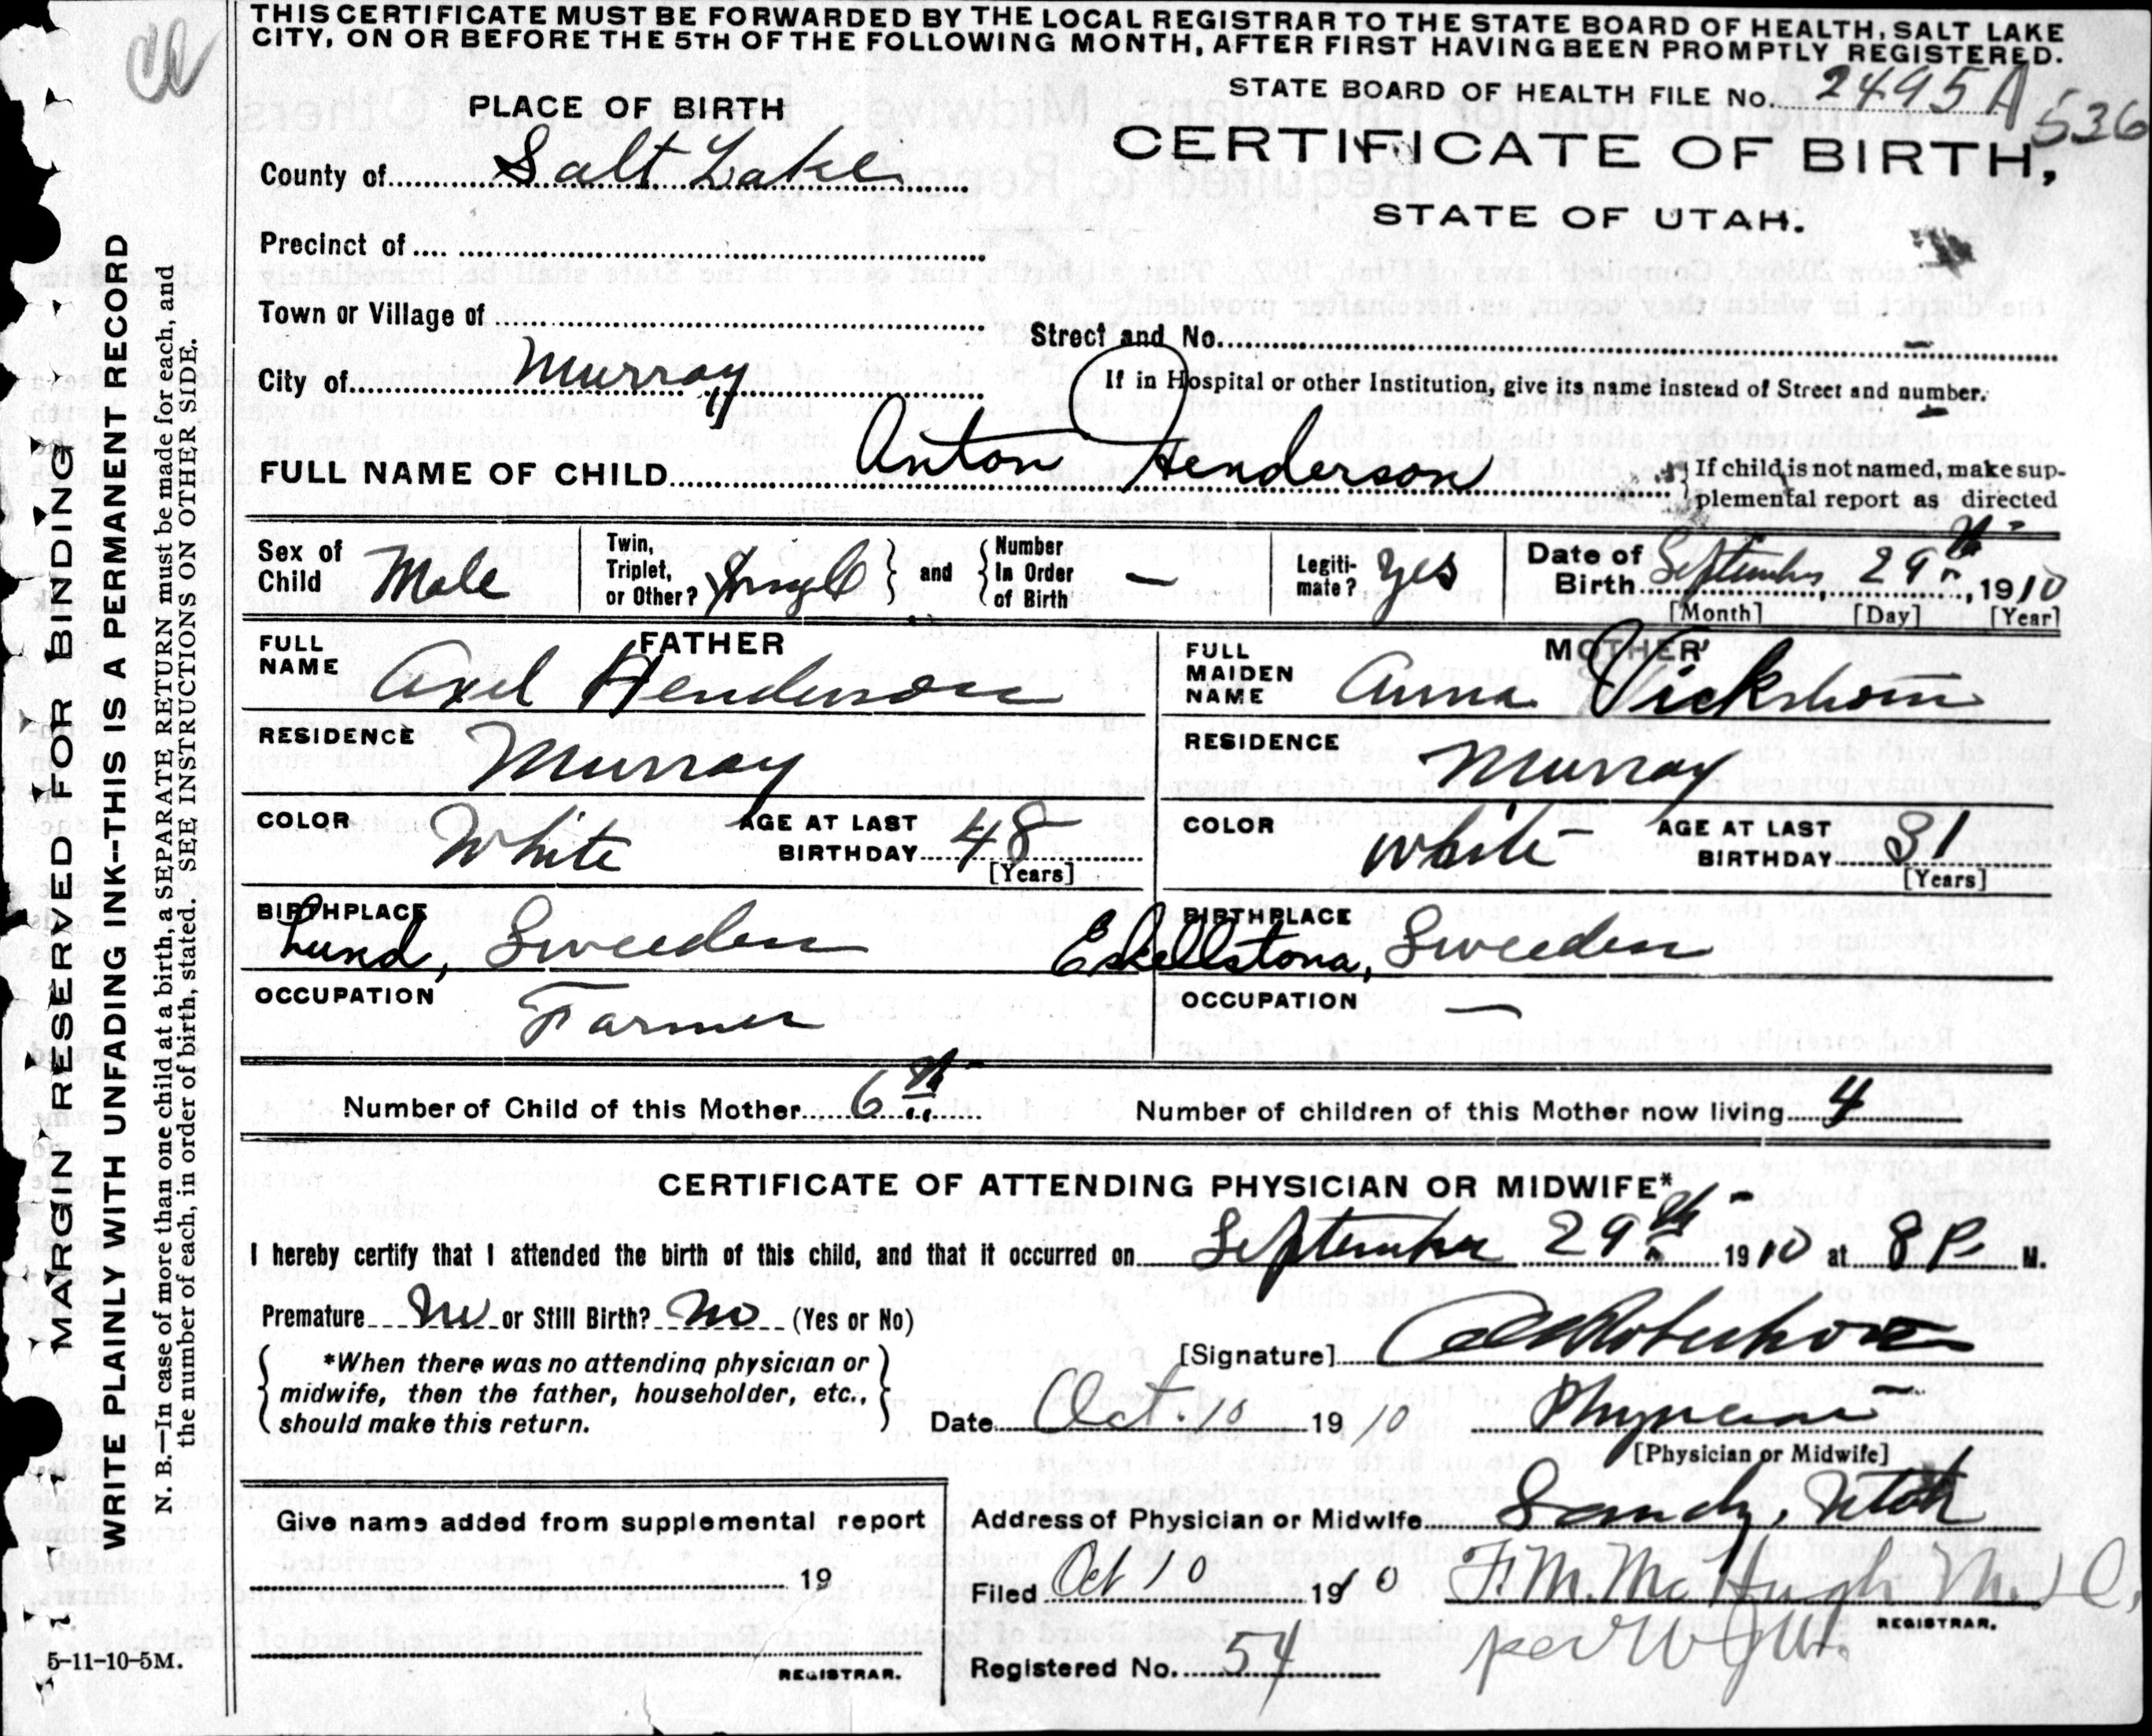 THIS CERTIFICATE MUST BE FORWARDED BY THE LOCAL REGISTRAR TO THE STATE BOARD OF HEALTH, SALT LAKE
CITY, ON OR BEFORE THE 5TH OF THE FOLLOWING MONTH, AFTER FIRST HAVING BEEN PROMPTLY REGISTERED.
STATE BOARD OF HEALTH FILE No. 2495 A
536
PLACE OF BIRTH
CERTIFICATE OF BIRTH,
County of Salt Lake
STATE OF UTAH.
Precinct of
Town or Village of
Street and No. –
City of Murray
If in Hospital or other Institution, give its name instead of Street and number. –
FULL NAME OF CHILD Anton Henderson
If child is not named, make sup-
plemental report as directed
Sex of Child Male
Twin, Triplet, or Other? Single and Number In Order of Birth —
Legiti-mate? Yes
Date of Birth September 29th, 1910
[Month] [Day] [Year]
FATHER
FULL NAME Axel Henderson
RESIDENCE Murray
COLOR White AGE AT LAST BIRTHDAY 48
[Years]
BIRTHPLACE Lund, Sweeden
OCCUPATION Farmer
MOTHER
FULL MAIDEN NAME Anna Vickstrom
RESIDENCE Murray
COLOR White AGE AT LAST BIRTHDAY 31
[Years]
BIRTHPLACE Eskellstona, Sweeden
OCCUPATION —
Number of Child of this Mother 6th
Number of children of this Mother now living 4
CERTIFICATE OF ATTENDING PHYSICIAN OR MIDWIFE*
I hereby certify that I attended the birth of this child, and that it occurred on September 29th 1910 at 8 P. M.
Premature No or Still Birth? No (Yes or No)
*When there was no attending physician or
midwife, then the father, householder, etc.,
should make this return.
[Signature]
Date Oct. 10 1910 Physician
[Physician or Midwife]
Give name added from supplemental report
19
REGISTRAR.
Address of Physician or Midwife Sandy, Utah
Filed Oct 10 1910 F. M. McHugh M.D.
REGISTRAR.
per W J W.
Registered No. 54
MARGIN RESERVED FOR BINDING
WRITE PLAINLY WITH UNFADING INK--THIS IS A PERMANENT RECORD
N. B.—In case of more than one child at a birth, a SEPARATE RETURN must be made for each, and
the number of each, in order of birth, stated. SEE INSTRUCTIONS ON OTHER SIDE.
5-11-10-5M.